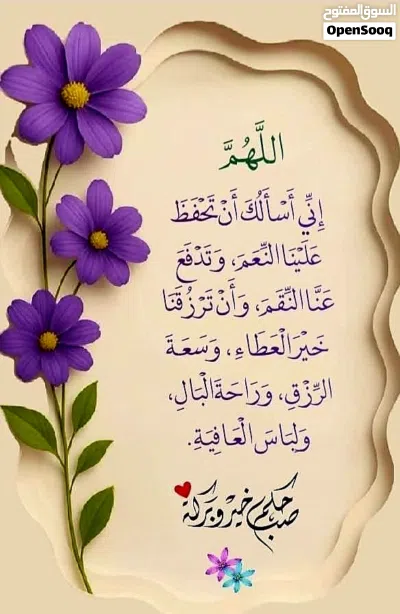 السوق المفتوح
OpenSooq
اللَّهُمَّ
إِنِّي أَسْأَلُكَ أَنْ تَحْفَظَ
عَلَيْنَا النِّعَمَ، وَتَدْفَعَ
عَنَّا النِّقَمَ، وَأَنْ تَرْزُقَنَا
خَيْرَ الْعَطَاءِ، وَسَعَةَ
الرِّزْقِ، وَرَاحَةَ الْبَالِ،
وَلِبَاسَ الْعَافِيَةِ.
صباحكم خير وبركة